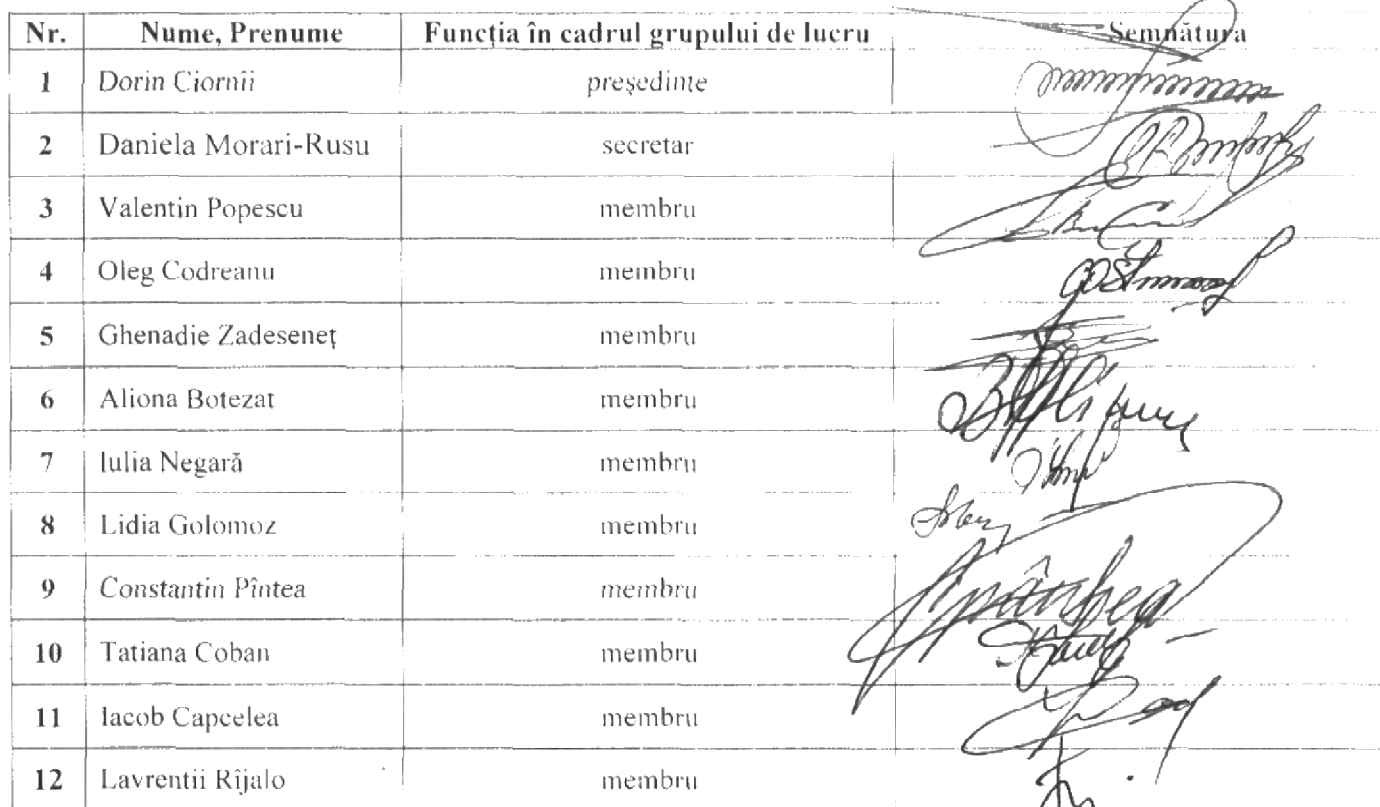 Nr. Nume, Prenume Funcția în cadrul grupului de lucru Semnătura
1 Dorin Ciornîi președinte
2 Daniela Morari-Rusu secretar
3 Valentin Popescu membru
4 Oleg Codreanu membru
5 Ghenadie Zadeseneț membru
6 Aliona Botezat membru
7 Iulia Negară membru
8 Lidia Golomoz membru
9 Constantin Pîntea membru
10 Tatiana Coban membru
11 Iacob Capcelea membru
12 Lavrentii Rîjalo membru